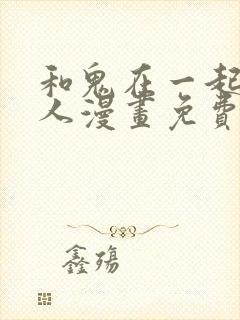 和鬼在一起
人漫畫免費
鑫殤